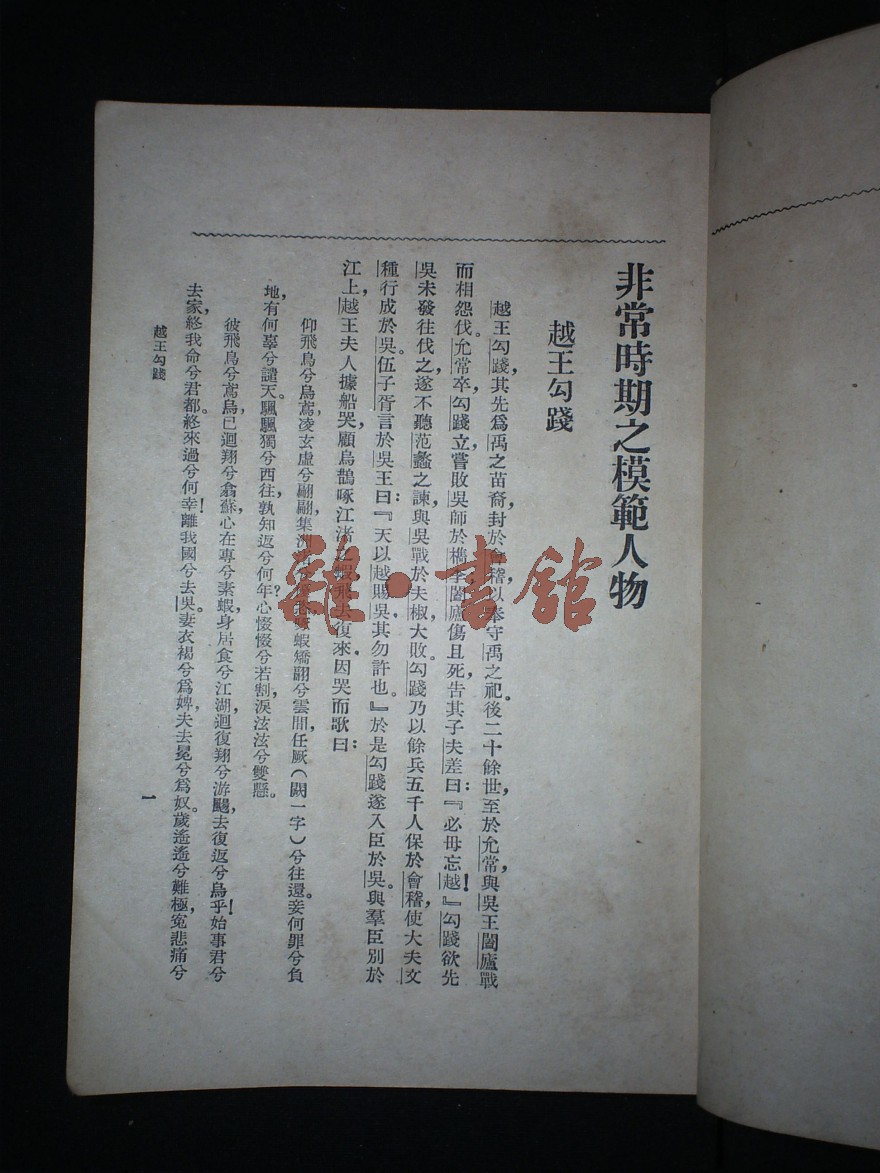 非常時期之模範人物
越王勾踐
越王勾踐，其先爲禹之苗裔，封於會稽，以奉守禹之祀。後二十餘世，至於允常，與吳王闔廬戰
而相怨伐。允常卒，勾踐立，嘗敗吳師於檇李，闔廬傷且死，告其子夫差曰：『必毋忘越！』勾踐欲先
吳未發往伐之，遂不聽范蠡之諫，與吳戰於夫椒，大敗。勾踐乃以餘兵五千人保於會稽，使大夫文
種行成於吳。伍子胥言於吳王曰：『天以越賜吳，其勿許也。』於是勾踐遂入臣於吳。與羣臣別於
江上，越王夫人據船哭，顧烏鵲啄江渚之蝦，飛去復來，因哭而歌曰：
仰飛鳥兮烏鳶，凌玄虛兮翩翩，集洲渚兮蝦矯翮兮雲間，任厥（闕一字）兮往還。妾何罪兮負
地，有何辜兮譴天。颿颿獨兮西往，孰知返兮何年？心惙惙兮若割，淚泫泫兮雙懸。
彼飛鳥兮鳶烏，已迴翔兮翕蘇，心在專兮素蝦，身居食兮江湖，迴復翔兮游颺，去復返兮烏乎！始事君兮
去家，終我命兮君都。終來過兮何幸！離我國兮去吳。妻衣褐兮爲婢，夫去冕兮爲奴。歲遙遙兮難極，冤悲痛兮
越王勾踐
一
雜·書館